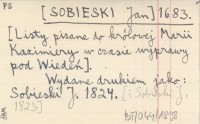 PS
[SOBIESKI Jan] 1683.
[Listy pisane do królowej Marii
Kazimiery w czasie wyprawy
pod Wiedeń].
Wydane drukiem jako:
Sobieski J. 1824. [: Sobieski J.
1823]